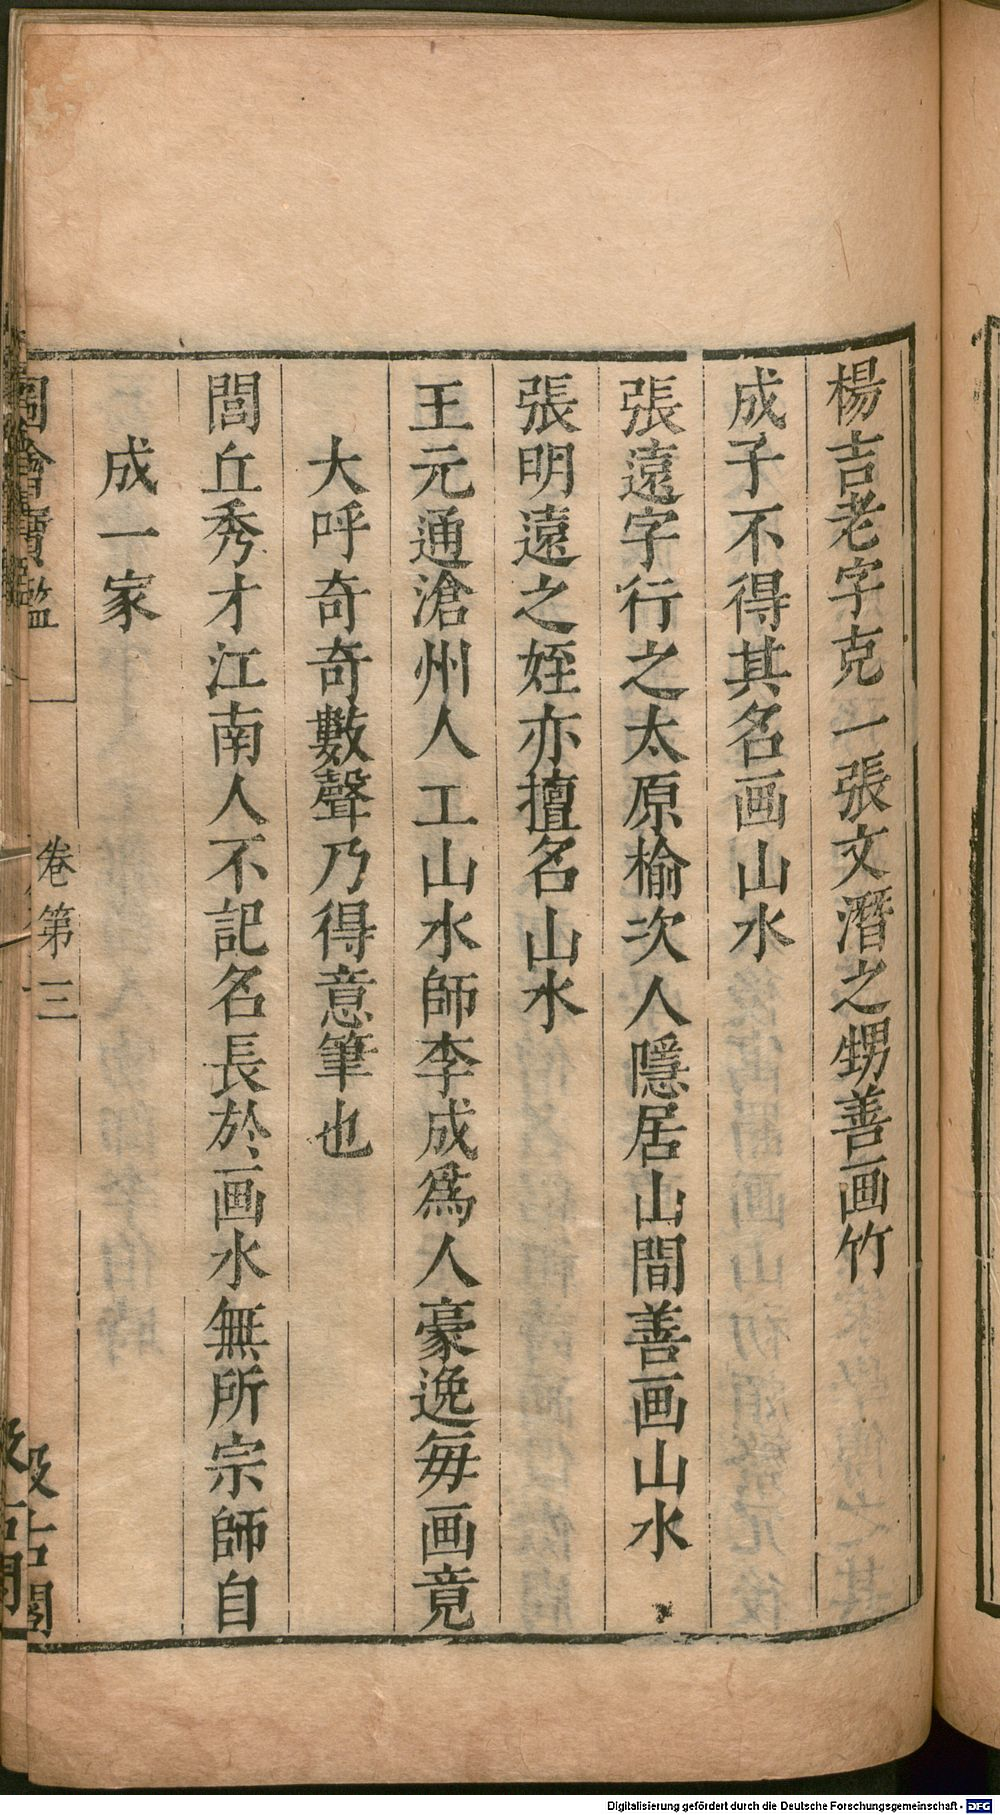 楊吉老字克一張文潛之甥善画竹
成子不得其名画山水
張遠字行之太原榆次人隱居山間善画山水
張明遠之姪亦擅名山水
王元通滄州人工山水師李成爲人豪逸每画竟
大呼奇奇數聲乃得意筆也
閭丘秀才江南人不記名長於画水無所宗師自
成一家
圖繪寶鑑
卷第三
汲古閣
Digitalisierung gefördert durch die Deutsche Forschungsgemeinschaft - DFG